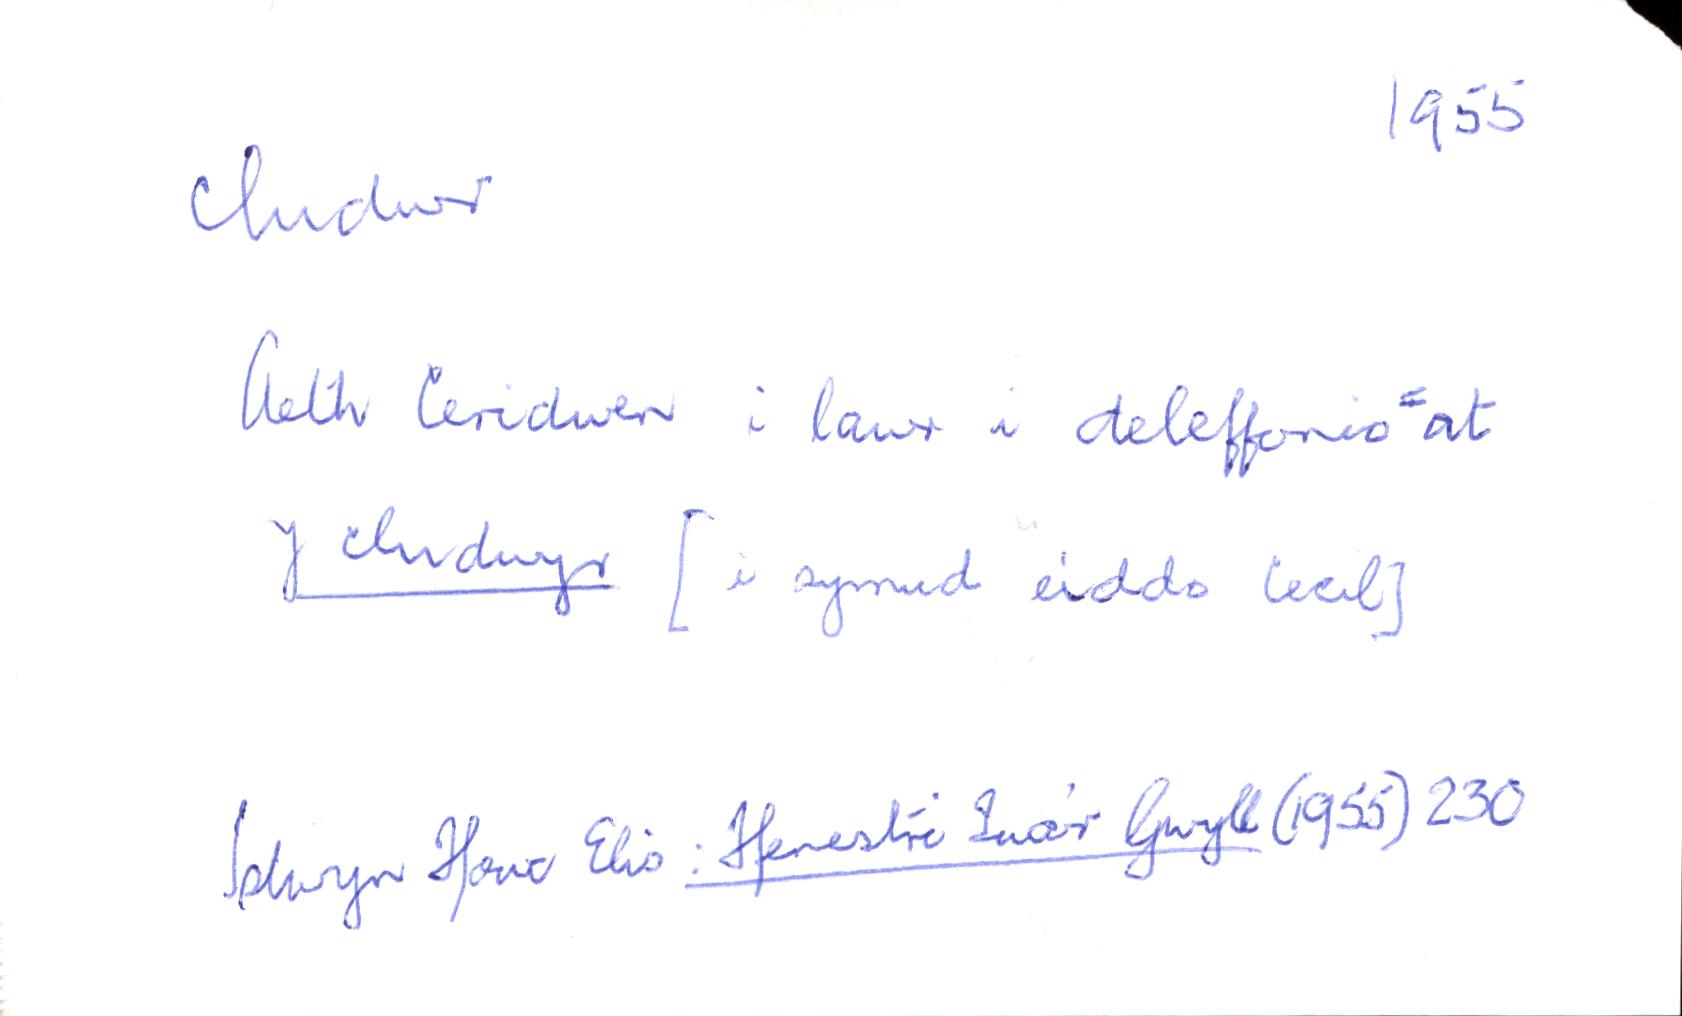 1955
cludwr
Aeth Ceridwen i lawr i deleffonio at
y cludwyr [i symud eiddo Cecil]
Islwyn Ffowc Elis: Ffenestri Tua'r Gwyll (1955) 230